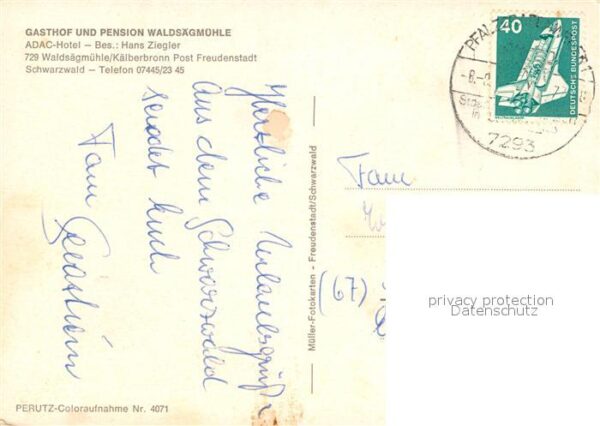 GASTHOF UND PENSION WALDSÄGMÜHLE
ADAC-Hotel – Bes.: Hans Ziegler
729 Waldsägmühle/Kälberbronn Post Freudenstadt
Schwarzwald – Telefon 07445/23 45
Herzliche Urlaubsgrüße
aus dem Schwarzwald
sendet Euch
Fam
PERUTZ-Coloraufnahme Nr. 4071
Müller-Fotokarten - Freudenstadt/Schwarzwald
40
DEUTSCHE BUNDESPOST
7293
Fam
(67)
privacy protection
Datenschutz